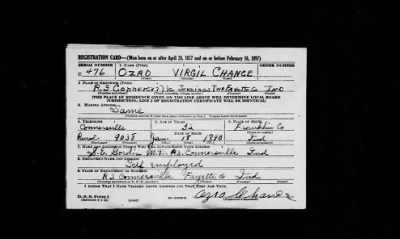 REGISTRATION CARD—(Men born on or after April 28, 1877 and on or before February 16, 1897)
SERIAL NUMBER 1. NAME (Print) ORDER NUMBER
U 476 OZRO VIRGIL CHANCE
2. PLACE OF RESIDENCE (Print)
R.3 Connersville Fayette Ind
[THE PLACE OF RESIDENCE GIVEN ON THE LINE ABOVE WILL DETERMINE LOCAL BOARD
JURISDICTION; LINE 2 OF REGISTRATION CERTIFICATE WILL BE IDENTICAL]
3. MAILING ADDRESS
Same
4. TELEPHONE 5. AGE IN YEARS 6. PLACE OF BIRTH
Connersville 52 Franklin Co
DATE OF BIRTH
Rural 9038 Jan. 18 1890 Ind
7. NAME AND ADDRESS OF PERSON WHO WILL ALWAYS KNOW YOUR ADDRESS
Gordon R3. Connersville Ind
8. EMPLOYER'S NAME AND ADDRESS
Self employed
9. PLACE OF EMPLOYMENT OR BUSINESS
R3 Connersville Fayette Co Ind
I AFFIRM THAT I HAVE VERIFIED ABOVE ANSWERS AND THAT THEY ARE TRUE.
D. S. S. Form 1 Ozro Chance